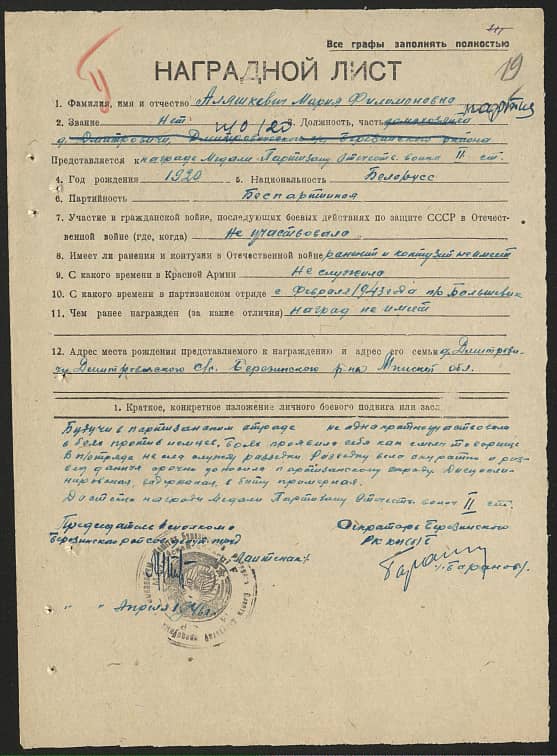 Все графы заполнять полностью
19
НАГРАДНОЙ ЛИСТ
1. Фамилия, имя и отчество Аляшкевич Мария Филомоновна
2. Звание Нет 3. Должность, часть домохозяйка
д. Дмитровичи, Березинского района
Представляется к награде Медали Партизану Отечеств. войны II ст.
4. Год рождения 1920 5. Национальность Белорусс
6. Партийность Беспартийная
7. Участие в гражданской войне, последующих боевых действиях по защите СССР в Отечест-
венной войне (где, когда) Не участвовала
8. Имеет ли ранения и контузии в Отечественной войне ранений и контузий не имеет
9. С какого времени в Красной Армии Не служила
10. С какого времени в партизанском отряде с Февраля 1943 года п/о Большевик
11. Чем ранее награжден (за какие отличия) наград не имеет
12. Адрес места рождения представляемого к награждению и адрес его семьи д. Дмитрови-
чи, Дмитровичского с/с. Березинского р-на Минской обл.
1. Краткое, конкретное изложение личного боевого подвига или засл
Будучи в партизанском отряде неоднократно участвовала
в боях против немцев, в боях проявила себя как
В п/отряде несла службу разведки. Разведку вела аккуратно и раз-
вед данные срочно доносила партизанскому отряду. Дисципли-
нированая, выдержаная, в быту примерная.
Достойна награды Медали Партизану Отечеств. войны II ст.
Председатель исполкома
Березинского рай совета деп. труд
Секретарь Березинского
РК КП(б)Б
/Баранов/
" " Апреля 1946 г.